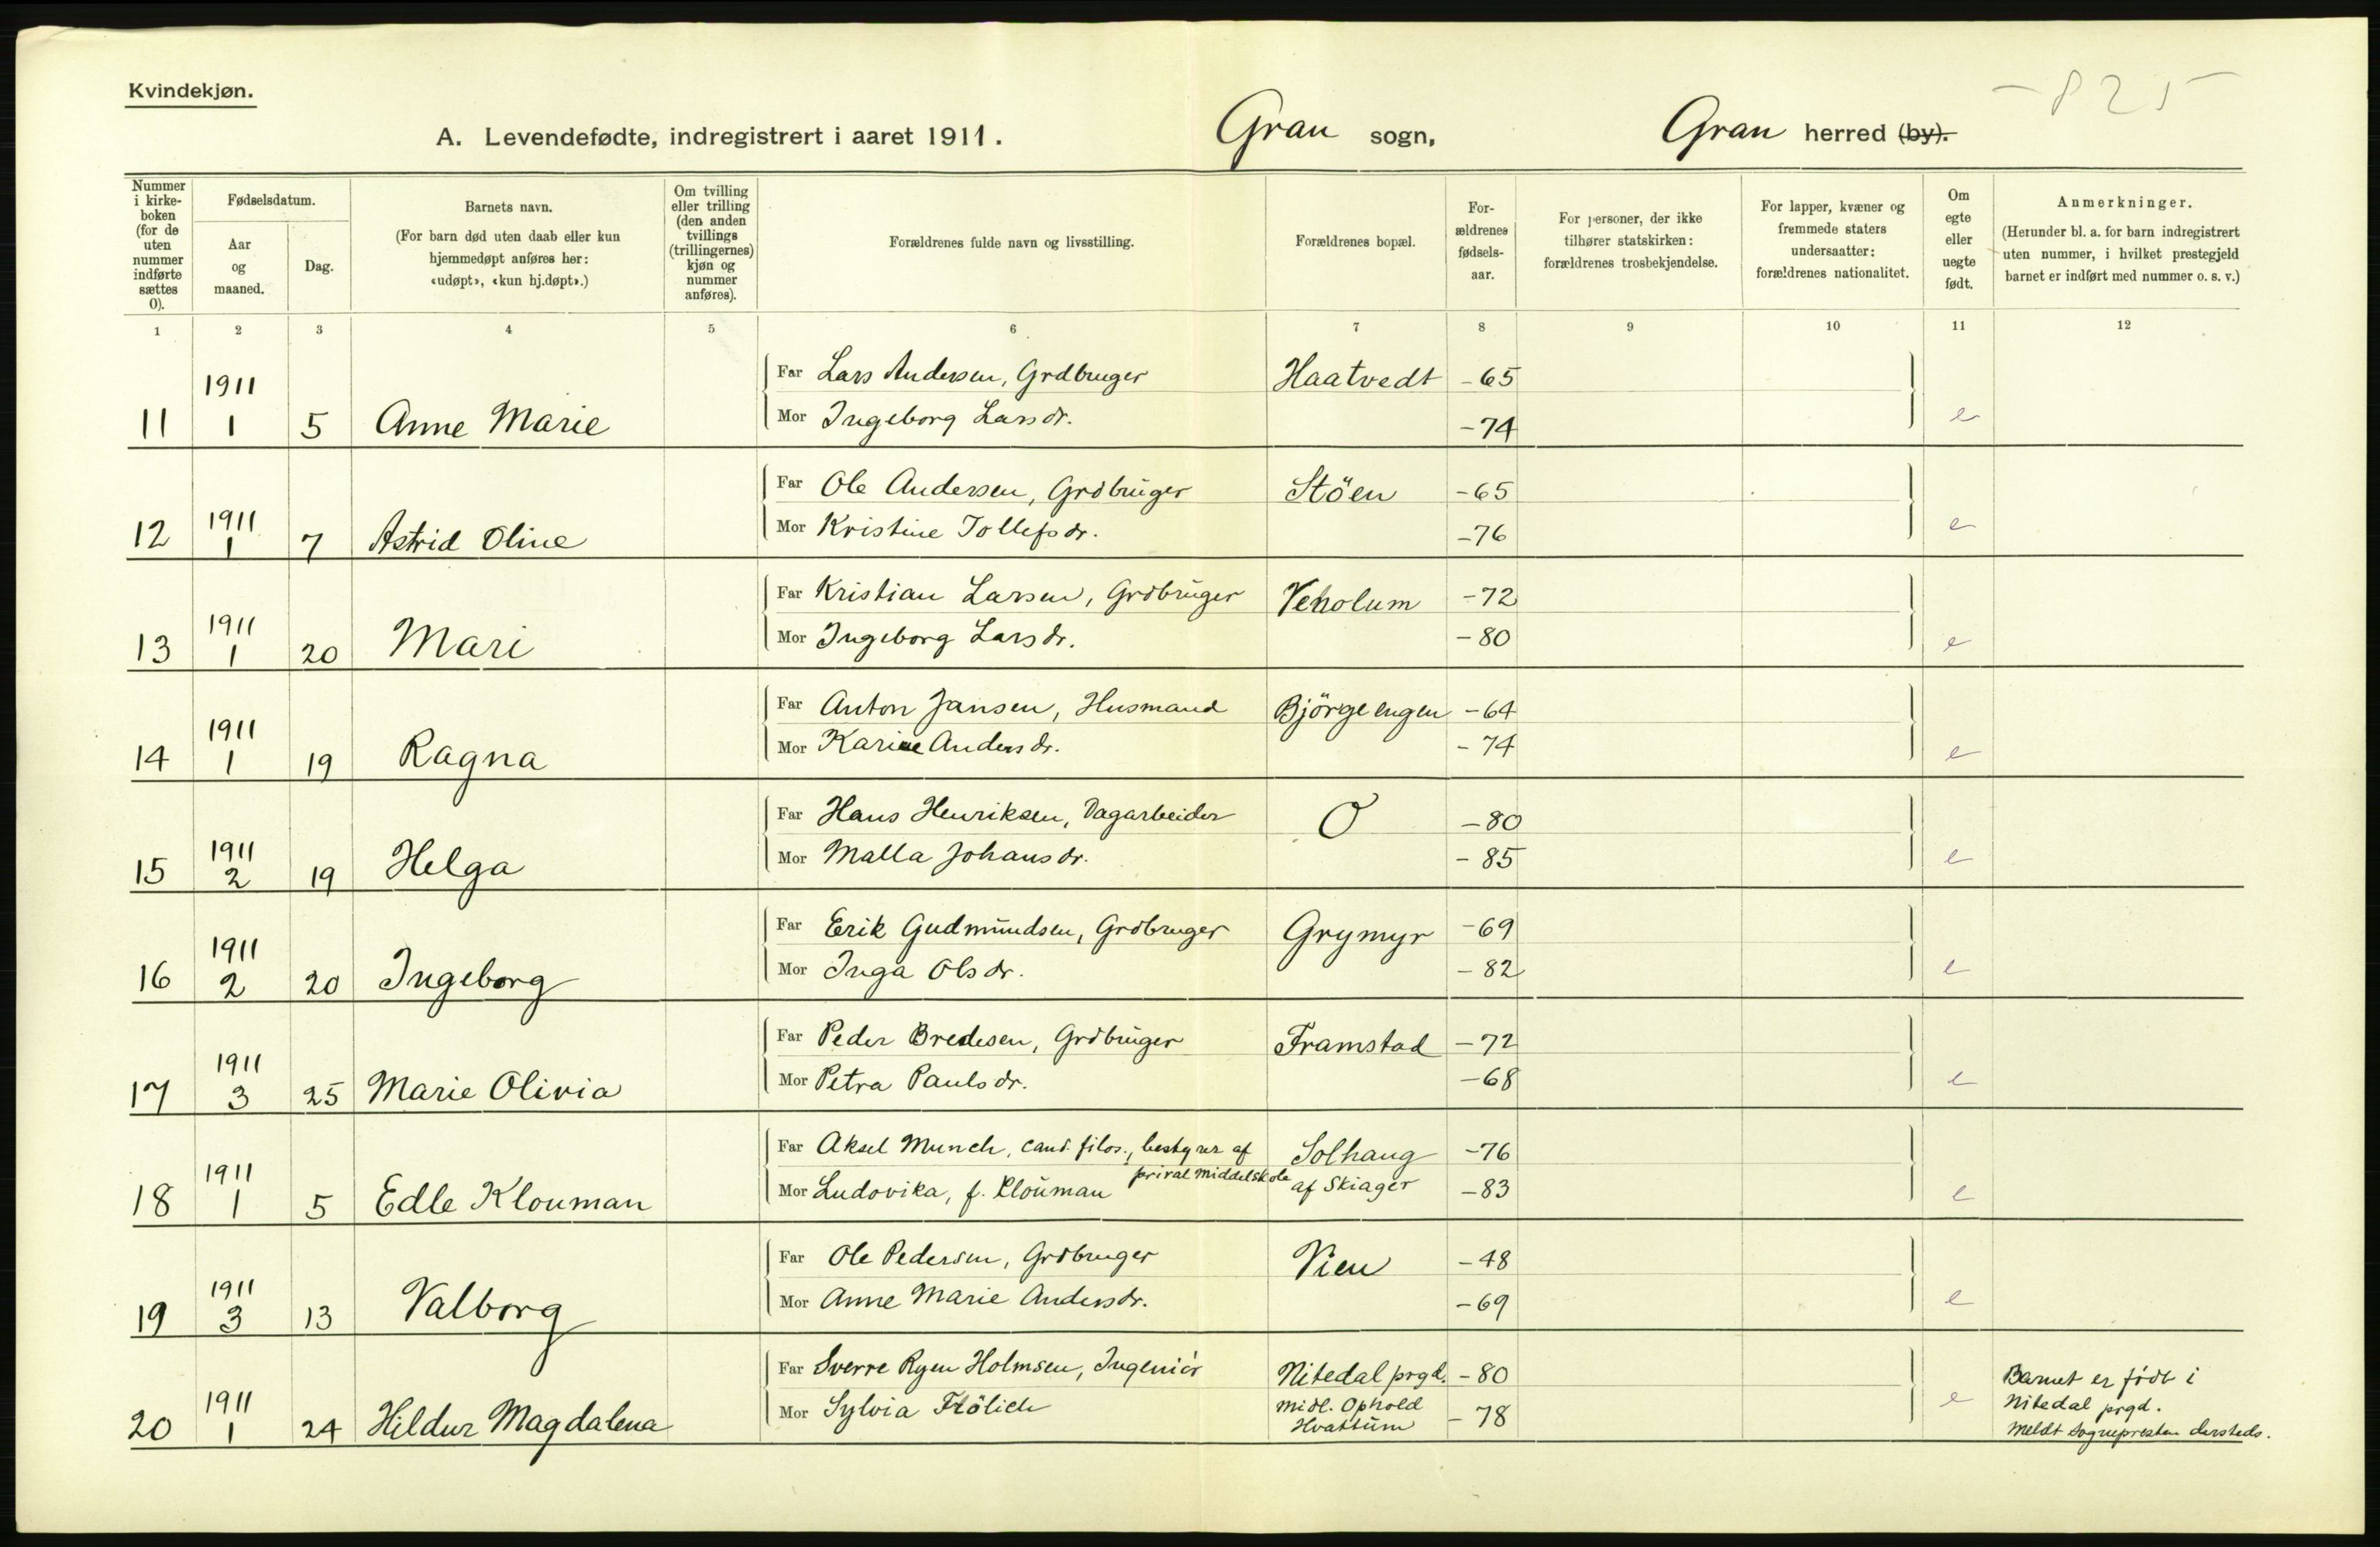 Kvindekjøn.
-825
A. Levendefødte, indregistrert i aaret 1911. Gran sogn, Gran herred (by).
Nummer i kirke-boken (for de uten nummer indførte sættes 0).
Fødselsdatum.
Aar og maaned.
Dag.
Barnets navn.
(For barn død uten daab eller kun hjemmedøpt anføres her: «udøpt», «kun hj.døpt».)
Om tvilling eller trilling (den anden tvillings (trillingernes) kjøn og nummer anføres).
Forældrenes fulde navn og livsstilling.
Forældrenes bopæl.
For-ældrenes fødsels-aar.
For personer, der ikke tilhører statskirken: forældrenes trosbekjendelse.
For lapper, kvæner og fremmede staters undersaatter: forældrenes nationalitet.
Om egte eller uegte født.
Anmerkninger.
(Herunder bl. a. for barn indregistrert uten nummer, i hvilket prestegjeld barnet er indført med nummer o. s. v.)
1 2 3 4 5 6 7 8 9 10 11 12
1911 Far Lars Andersen, Grdbruger Haatvedt -65
11 1 5 Anne Marie Mor Ingeborg Larsdr. -74 e
Far Ole Andersen, Grdbruger Stöen -65
12 1911 1 7 Astrid Oline Mor Kristine Tollefsdr. -76 e
Far Kristian Larsen, Grdbruger Veholum -72
13 1911 1 20 Mari Mor Ingeborg Larsdr. -80 e
Far Anton Jansen, Husmand Björgeengen -64
14 1911 1 19 Ragna Mor Karine Andersdr. -74 e
Far Hans Henriksen, Dagarbeider O -80
15 1911 2 19 Helga Mor Malla Johansdr. -85 e
Far Erik Gudmundsen, Grdbruger Grymyr -69
16 1911 2 20 Ingeborg Mor Inga Olsdr. -82 e
Far Peder Bredesen, Grdbruger Framstad -72
17 1911 3 25 Marie Olivia Mor Petra Paulsdr. -68 e
Far Aksel Munch, cand. filos., bestyrer af Solhaug -76
privat Middelskole
18 1911 1 5 Edle Klouman Mor Ludovika, f. Klouman af Skiager -83 e
Far Ole Pedersen, Grdbruger Vien -48
19 1911 3 13 Valborg Mor Anne Marie Andersdr. -69 e
Far Sverre Ryen Holmsen, Ingeniör Nitedal prgd. -80 Barnet er födt i
20 1911 1 24 Hildur Magdalena Mor Sylvia Frölich midl. Ophold -78 e Nitedal prgd.
Hvattum Meldt Sognepresten dersteds.